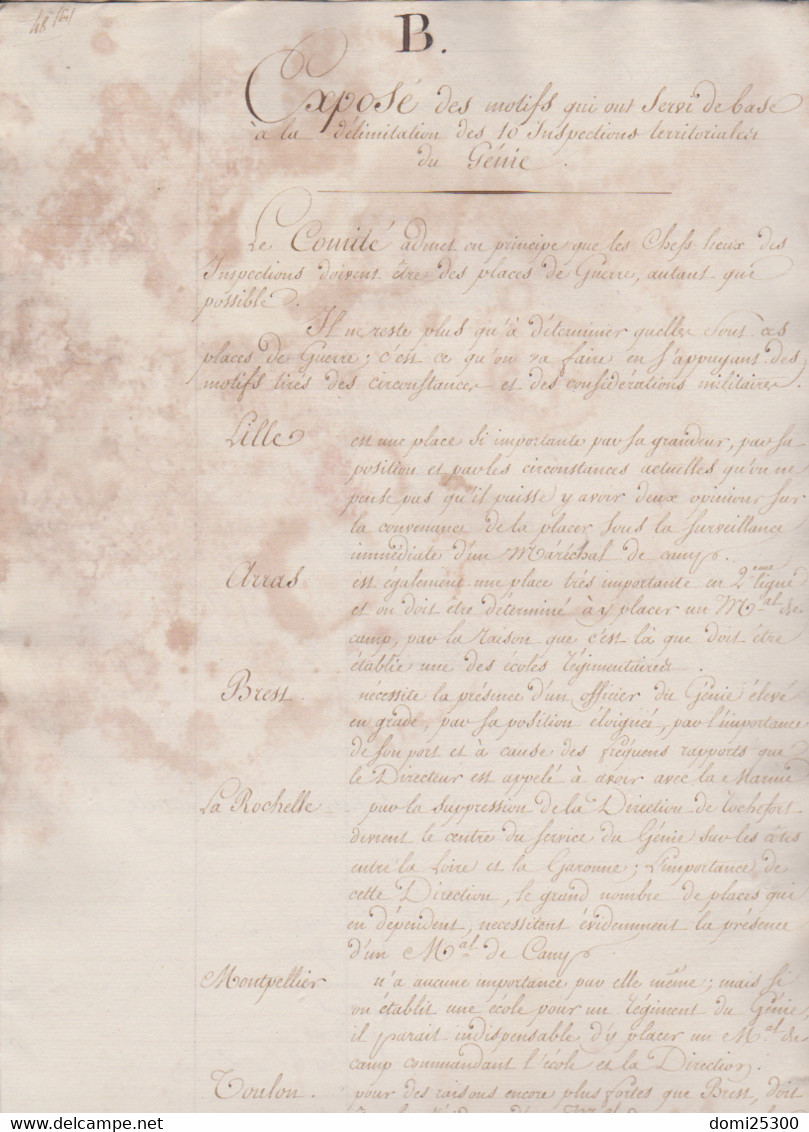 48 bis
B.
Exposé des motifs qui ont servi de base
à la délimitation des 10 Inspections territoriales
du Génie.
Le Comité admet en principe que les Chefs lieux des
Inspections doivent être des places de Guerre, autant que
possible.
Il ne reste plus qu'à déterminer quelles sont ces
places de Guerre; c'est ce qu'on va faire en s'appuyant des
motifs tirés des circonstances et des considérations militaires.
Lille est une place si importante par sa grandeur, par sa
position et par les circonstances actuelles qu'on ne
pense pas qu'il puisse y avoir deux opinions sur
la convenance de la placer sous la surveillance
immédiate d'un Maréchal de camp.
Arras est également une place très importante en 2eme ligne
et on doit être déterminé à y placer un Mal de
camp, par la raison que c'est là que doit être
établie une des écoles régimentaires.
Brest. nécessite la présence d'un officier du Génie élevé
en grade, par sa position éloignée, par l'importance
de son port et à cause des fréquens rapports que
le Directeur est appelé à avoir avec la Marine
La Rochelle par la suppression de la Direction de Rochefort
devient le centre du service du Génie sur les côtes
entre la Loire et la Garonne; L'importance de
cette Direction, le grand nombre de places qui
en dépendent, necessitent évidemment la présence
d'un Mal de Camp.
Montpellier n'a aucune importance par elle même; mais si
on établit une école pour un régiment du Génie,
il parait indispensable d'y placer un Mal de
camp commandant l'école et la Direction.
Toulon. pour des raisons encore plus fortes que Brest, doit
domi25300